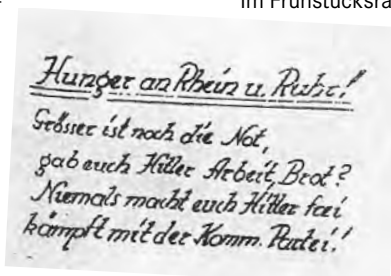 im Frühstücksra
Hunger an Rhein u. Ruhr!
Grösser ist noch die Not,
gab euch Hitler Arbeit, Brot?
Niemals macht euch Hitler frei
kämpft mit der Komm. Partei!